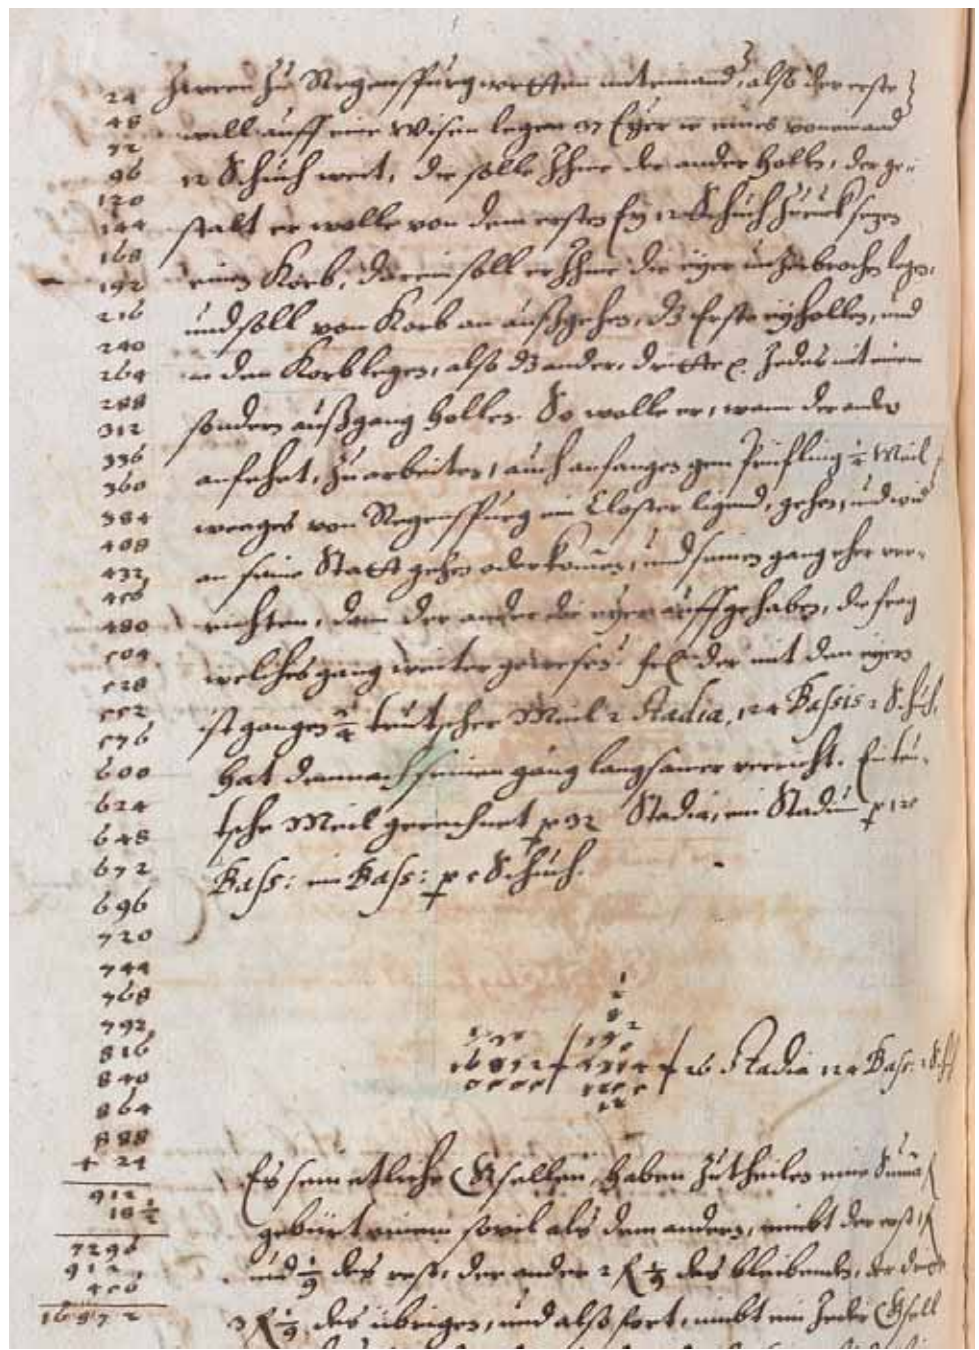 24
48
72
96
120
144
168
192
216
240
264
288
312
336
360
384
408
432
456
480
504
528
552
576
600
624
648
672
696
720
744
768
792
816
840
864
888
+ 24
912
18 1/2
7296
912
456
16872
Herren zu Regenspurg wetten miteinand, also der erste
will auff eine Wisen legen 37 Eyer ie eines vonenand
12 Schuch weit, die solle Ihme der ander hollen, der ge-
stalt er wolle von dem ersten Ey 12 Schuch zuruck sezen
einen Korb, darein soll er Ihme die eyer unzerbrochen legen,
und soll von Korb an außgehen, dz Erste ey hollen, und
in den Korb legen, also dz ander, dritte Jedes mit einem
sondern außgang hollen. So wolle er, wann der ander
anfehrt, zu arbeiten, auch anfangen gen Prüfling 1/4 Meil
weeges von Regenspurg ein Closter ligend, gehen, und wid
an seine Statt gehen oder komen, und seinen gang eher ver-
richten, dann der ander die eyer auffgehaben, die frag
welches gang weiter gewesen. der mit den eyern
ist gangen 3/4 teutscher Meil 2 Stadia, 124 Passis 2 Schuch.
hat dennach seinen gang langsamer verricht. Ein teu-
tsche Meil gerechnet p 32 Stadia, ein Stadiu p 125
Pass: ein Pass: p 5 Schuch.
26 Stadia 124 Pass: 2 Sch
Es sein etliche Gsellen, haben zutheilen eine Suma f
gebürt einem sovil als dem andern, nimbt der erst 1 f
und 1/9 des rest, der ander 2 f 1/9 des bleibenden, der drit
3 f 1/9 des übrigen, und also fort, nimbt ein Jeder Gsell